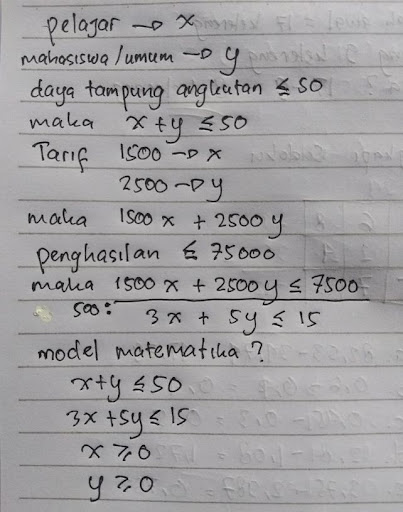 pelajar → x
mahasiswa/umum → y
daya tampung angkutan ≤ 50
maka x + y ≤ 50
Tarif 1500 → x
2500 → y
maka 1500 x + 2500 y
penghasilan ≤ 75000
maka 1500 x + 2500 y ≤ 7500
500 : 3x + 5y ≤ 15
model matematika ?
x+y ≤ 50
3x + 5y ≤ 15
x ≥ 0
y ≥ 0